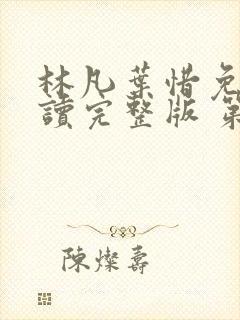 林凡葉惜免
讀完整版 第
陳燦壽